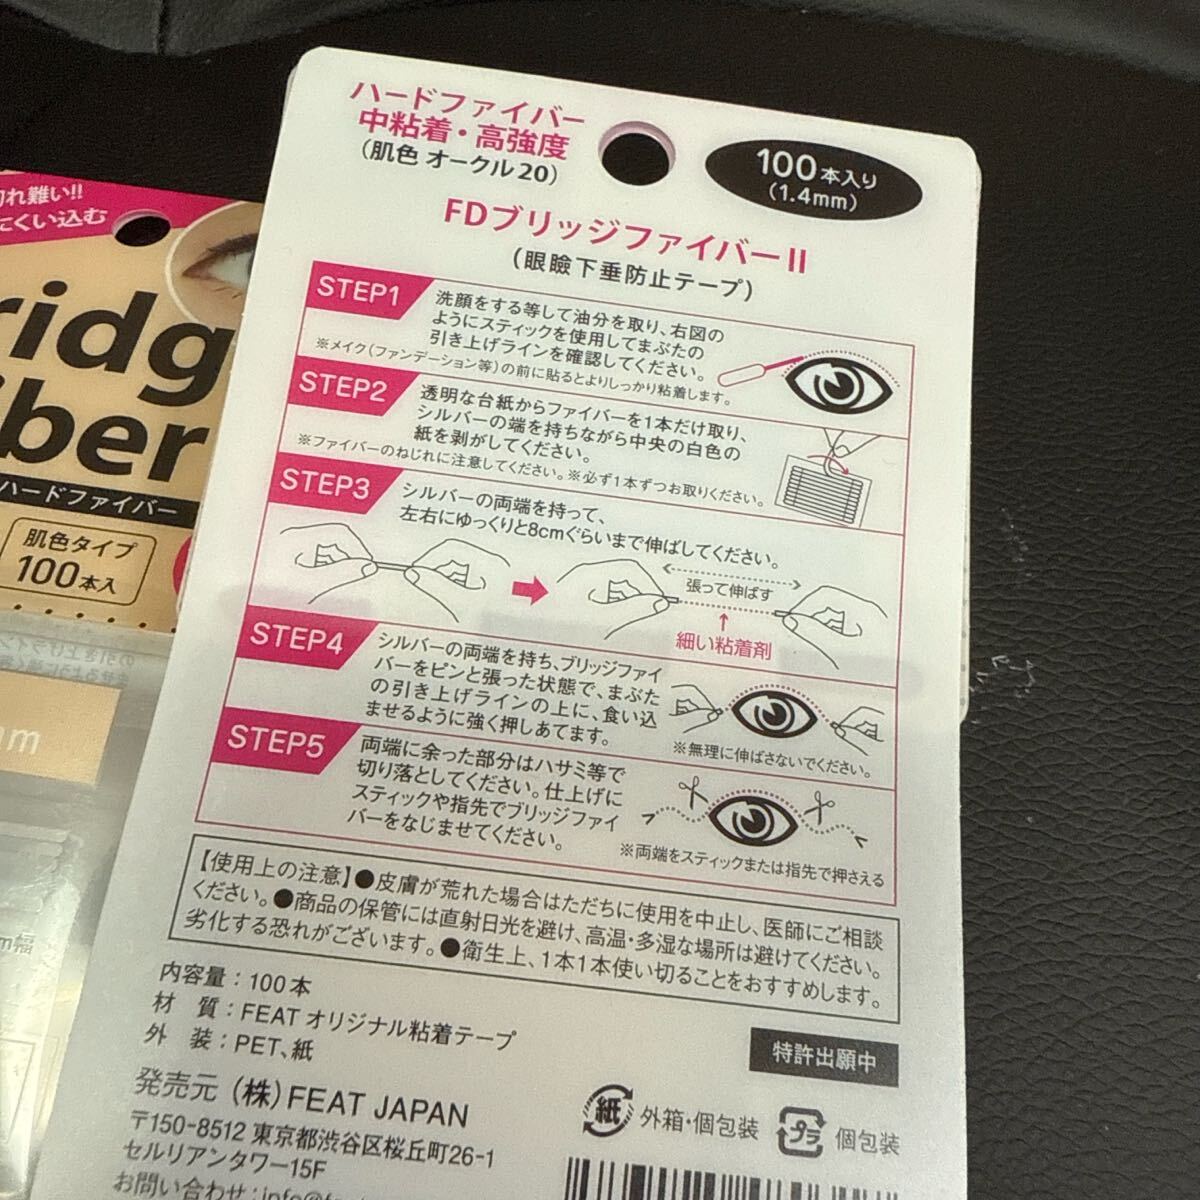 ハードファイバー
中粘着・高強度
(肌色 オークル20)
100本入り
(1.4mm)
FDブリッジファイバーII
(眼瞼下垂防止テープ)
STEP1
洗顔をする等して油分を取り、右図の
ようにスティックを使用してまぶたの
引き上げラインを確認してください。
※メイク(ファンデーション等)の前に貼るとよりしっかり粘着します。
STEP2
透明な台紙からファイバーを1本だけ取り、
シルバーの端を持ちながら中央の白色の
紙を剥がしてください。
※ファイバーのねじれに注意してください。※必ず1本ずつお取りください。
STEP3
シルバーの両端を持って、
左右にゆっくりと8cmぐらいまで伸ばしてください。
張って伸ばす
細い粘着剤
STEP4
シルバーの両端を持ち、ブリッジファイ
バーをピンと張った状態で、まぶた
の引き上げラインの上に、食い込
ませるように強く押しあてます。
※無理に伸ばさないでください。
STEP5
両端に余った部分はハサミ等で
切り落としてください。仕上げに
スティックや指先でブリッジファイ
バーをなじませてください。
※両端をスティックまたは指先で押さえる
【使用上の注意】●皮膚が荒れた場合はただちに使用を中止し、医師にご相談
ください。●商品の保管には直射日光を避け、高温・多湿な場所は避けてください。
劣化する恐れがございます。●衛生上、1本1本使い切ることをおすすめします。
内容量：100本
材　質：FEAT オリジナル粘着テープ
外　装：PET、紙
特許出願中
発売元 (株)FEAT JAPAN
〒150-8512 東京都渋谷区桜丘町26-1
セルリアンタワー15F
お問い合わせ：info@
紙
外箱・個包装
プラ
個包装
れ難い!!
くい込む
ridg
iber
ハードファイバー
肌色タイプ
100本入
mm
m幅